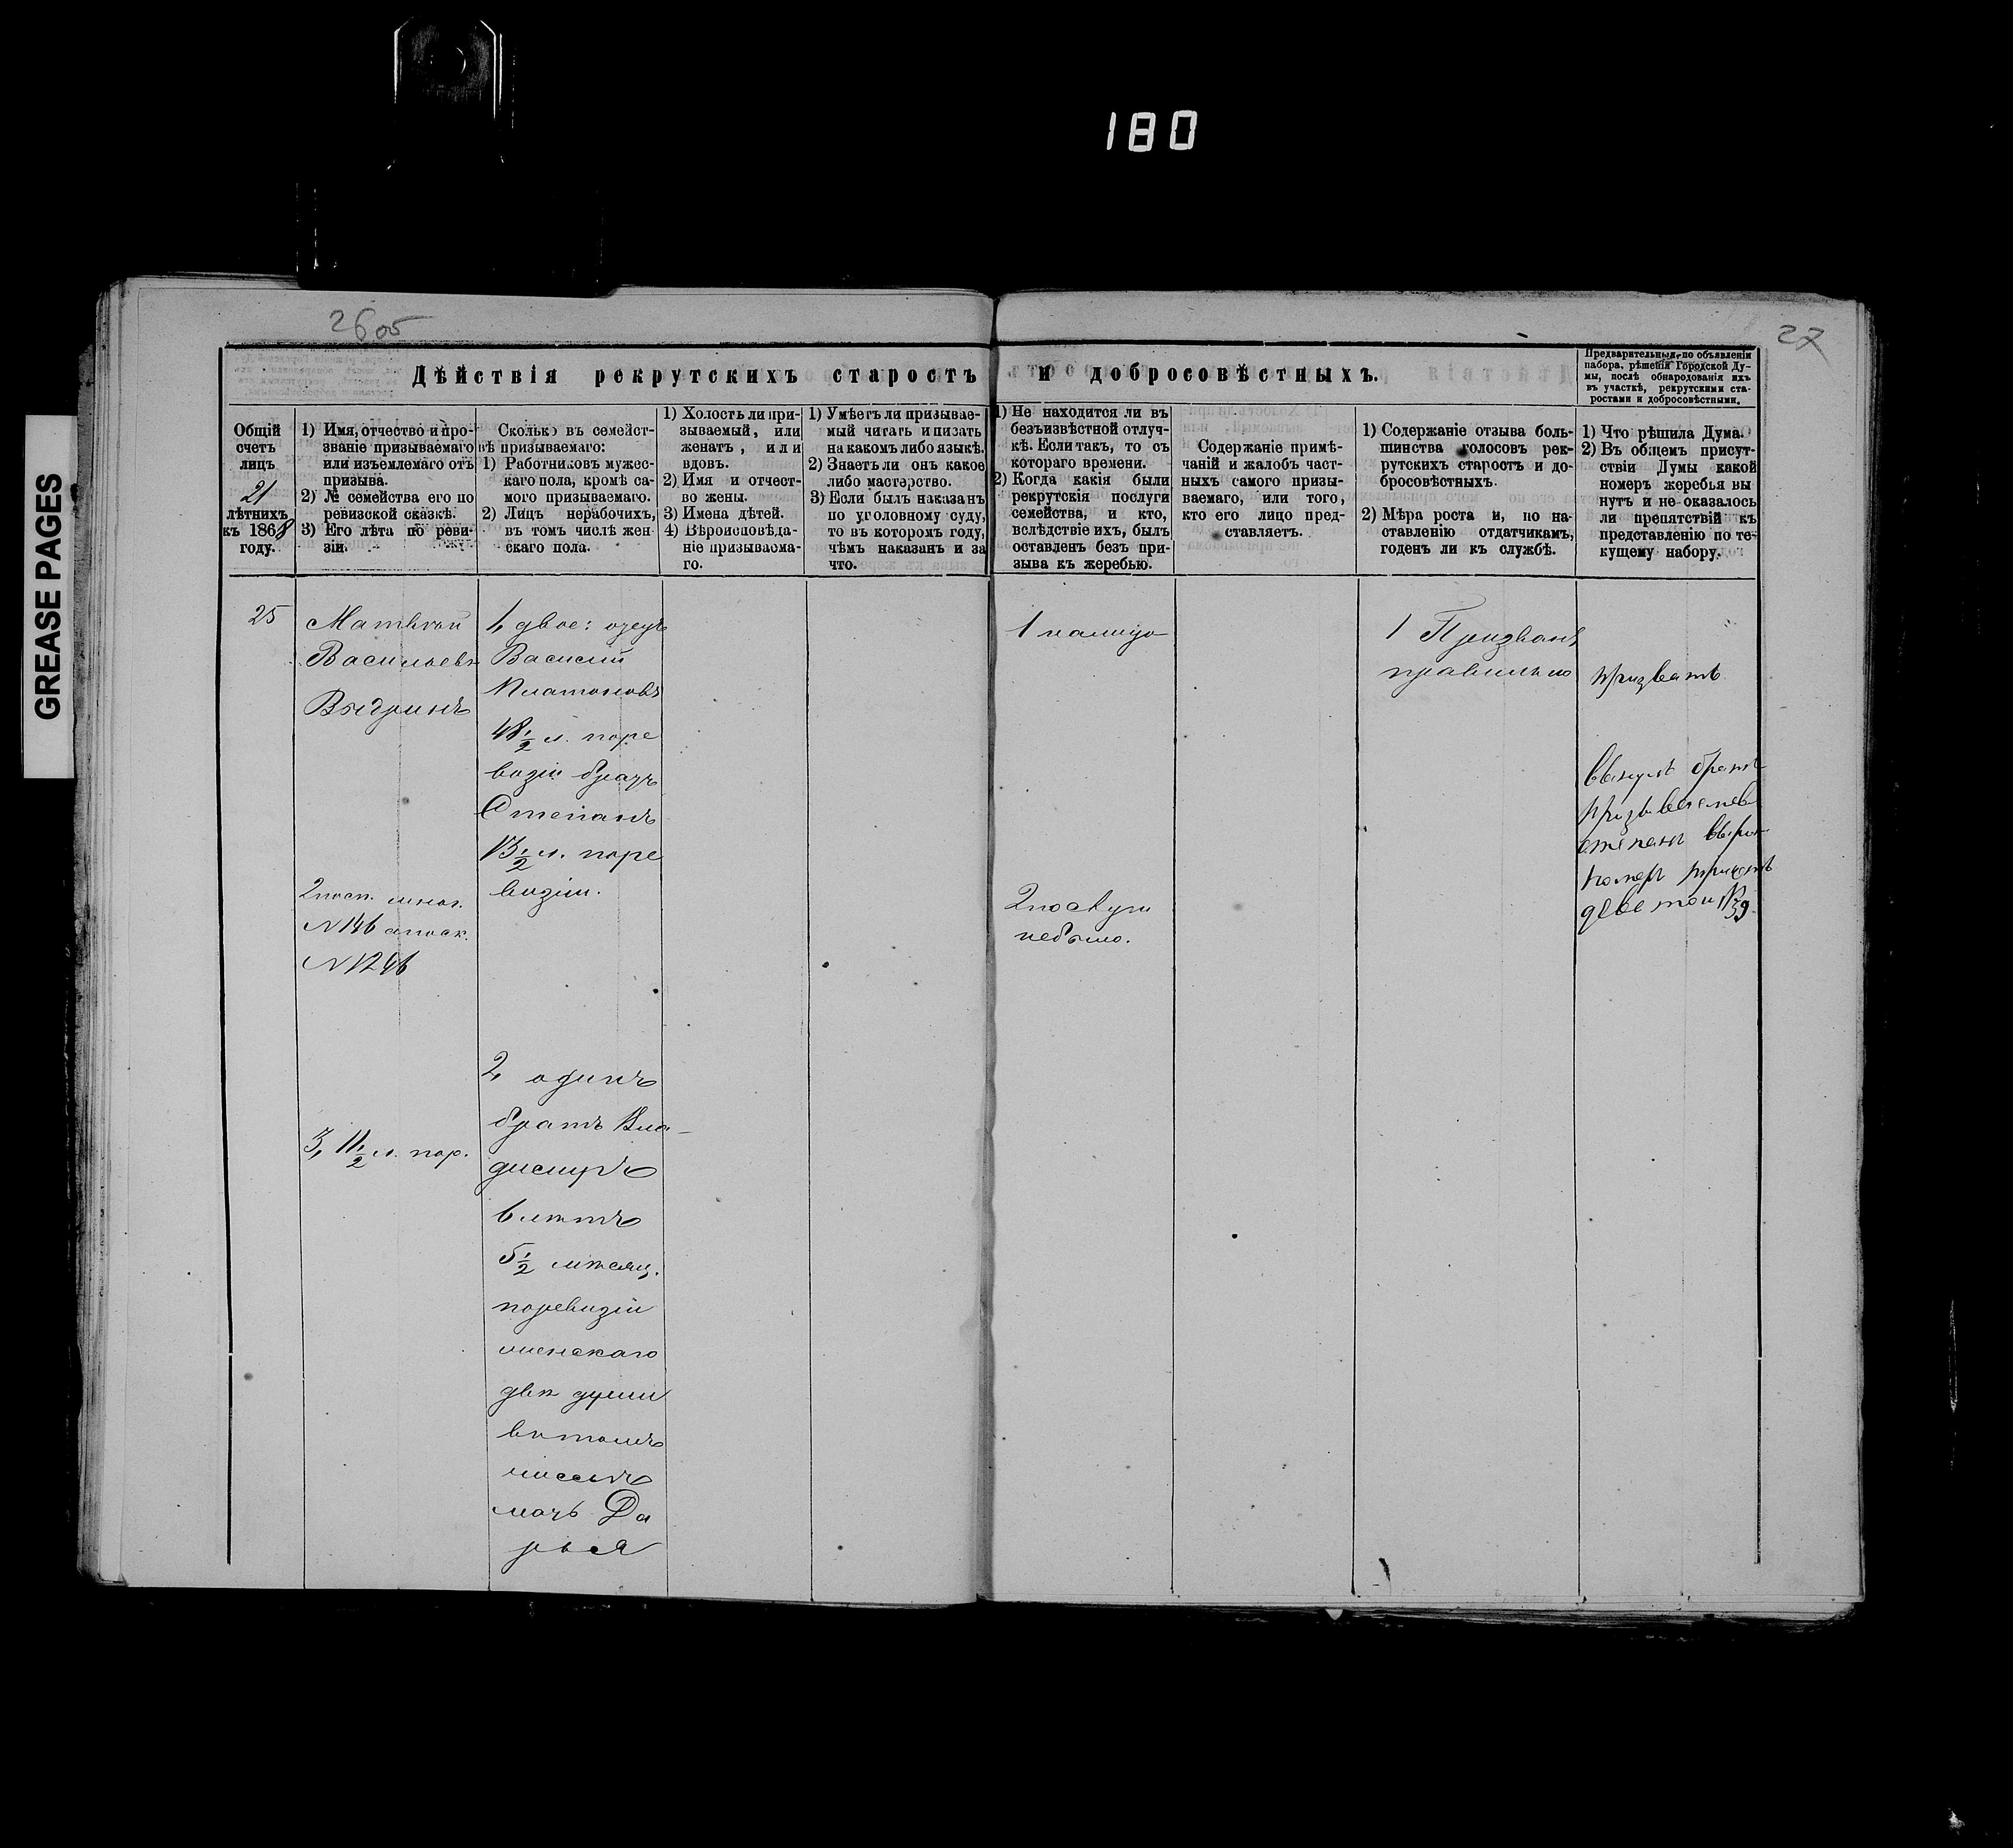 180
GREASE PAGES
26 об
27
Дѣйствія рекрутскихъ старостъ и добросовѣстныхъ.
Предварительныя, по объявленіи
набора, рѣшенія Городской Ду-
мы, послѣ обнародованія ихъ
въ участкѣ, рекрутскими ста-
ростами и добросовѣстными.
Общій
счетъ
лицъ
21
лѣтнихъ
къ 1868
году.
1) Имя, отчество и про-
званіе призываемаго
или изъемлемаго отъ
призыва.
2) № семейства его по
ревизской сказкѣ.
3) Его лѣта по реви-
зіи.
Сколько въ семейст-
вѣ призываемаго:
1) Работниковъ мужес-
каго пола, кромѣ са-
мого призываемаго.
2) Лицъ нерабочихъ,
въ томъ числѣ жен-
скаго пола.
1) Холостъ ли при-
зываемый, или
женатъ, или
вдовъ.
2) Имя и отчест-
во жены.
3) Имена дѣтей.
4) Вѣроисповѣда-
ніе призываема-
го.
1) Умѣетъ ли призывае-
мый читать и писать
на какомъ либо языкѣ.
2) Знаетъ ли онъ какое
либо мастерство.
3) Если былъ наказанъ
по уголовному суду,
то въ которомъ году,
чѣмъ наказанъ и за
что.
1) Не находится ли въ
безъизвѣстной отлуч-
кѣ. Если такъ, то съ
котораго времени.
2) Когда какія были
рекрутскія послуги
семейства, и кто,
вслѣдствіе ихъ, былъ
оставленъ безъ при-
зыва къ жеребью.
Содержаніе примѣ-
чаній и жалобъ част-
ныхъ самого призы-
ваемаго, или того,
кто его лицо пред-
ставляетъ.
1) Содержаніе отзыва боль-
шинства голосовъ рек-
рутскихъ старостъ и до-
бросовѣстныхъ.
2) Мѣра роста и, по на-
ставленію отдатчикамъ,
годенъ ли къ службѣ.
1) Что рѣшила Дума.
2) Въ общемъ присут-
ствіи Думы какой
номеръ жеребья вы
нутъ и не оказалось
ли препятствій къ
представленію по те-
кущему набору.
25
Матвѣй
Васильевъ
Выдринъ
2 посп.
№ 146
№ 1246
3, 11½ л. пор.
1, двое: отецъ
Василій
Платоновъ
48½ л. поре
визіи братъ
Степанъ
13½ л. поре
визіи.
2, одинъ
братъ Вла-
димиръ
6 лѣтъ
5½ мѣсяц.
поревизіи
женскаго
двѣ души
въ томъ
числѣ
мать Да
рья
1 налицо
2 послуги
небыло.
1 Призванъ
правильно
призвать
вынулъ братъ
степанъ
номеръ тритцать
девятой № 39